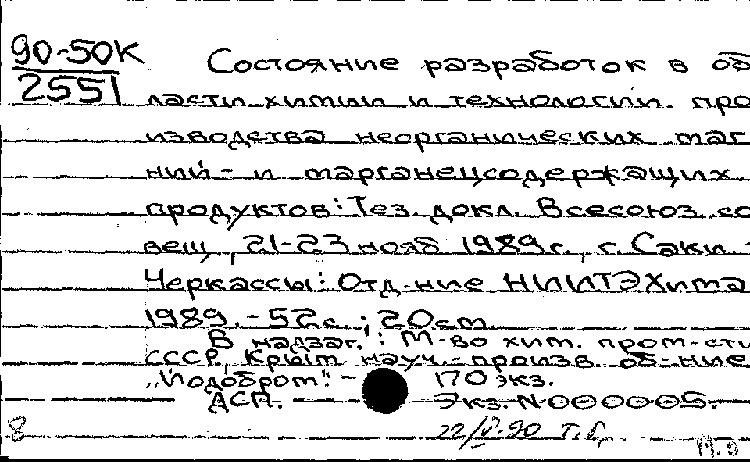 90-50К
2551
Состояние разработок в об
ласти химии и технологии про
изводства неорганических маг
ний- и марганецсодержащих
продуктов: Тез. докл. Всесоюз. со
вещ., 21-23 нояб 1989г., г. Саки -
Черкассы: Отд-ние НИИТЭХима
1989. - 52с.; 20см
В надзаг.: М-во хим. пром-сти
СССР, Крым науч.-произв. об-ние
"Йодобром". - 170 экз.
ДСП. Экз. N 000005.
8
22/V-90